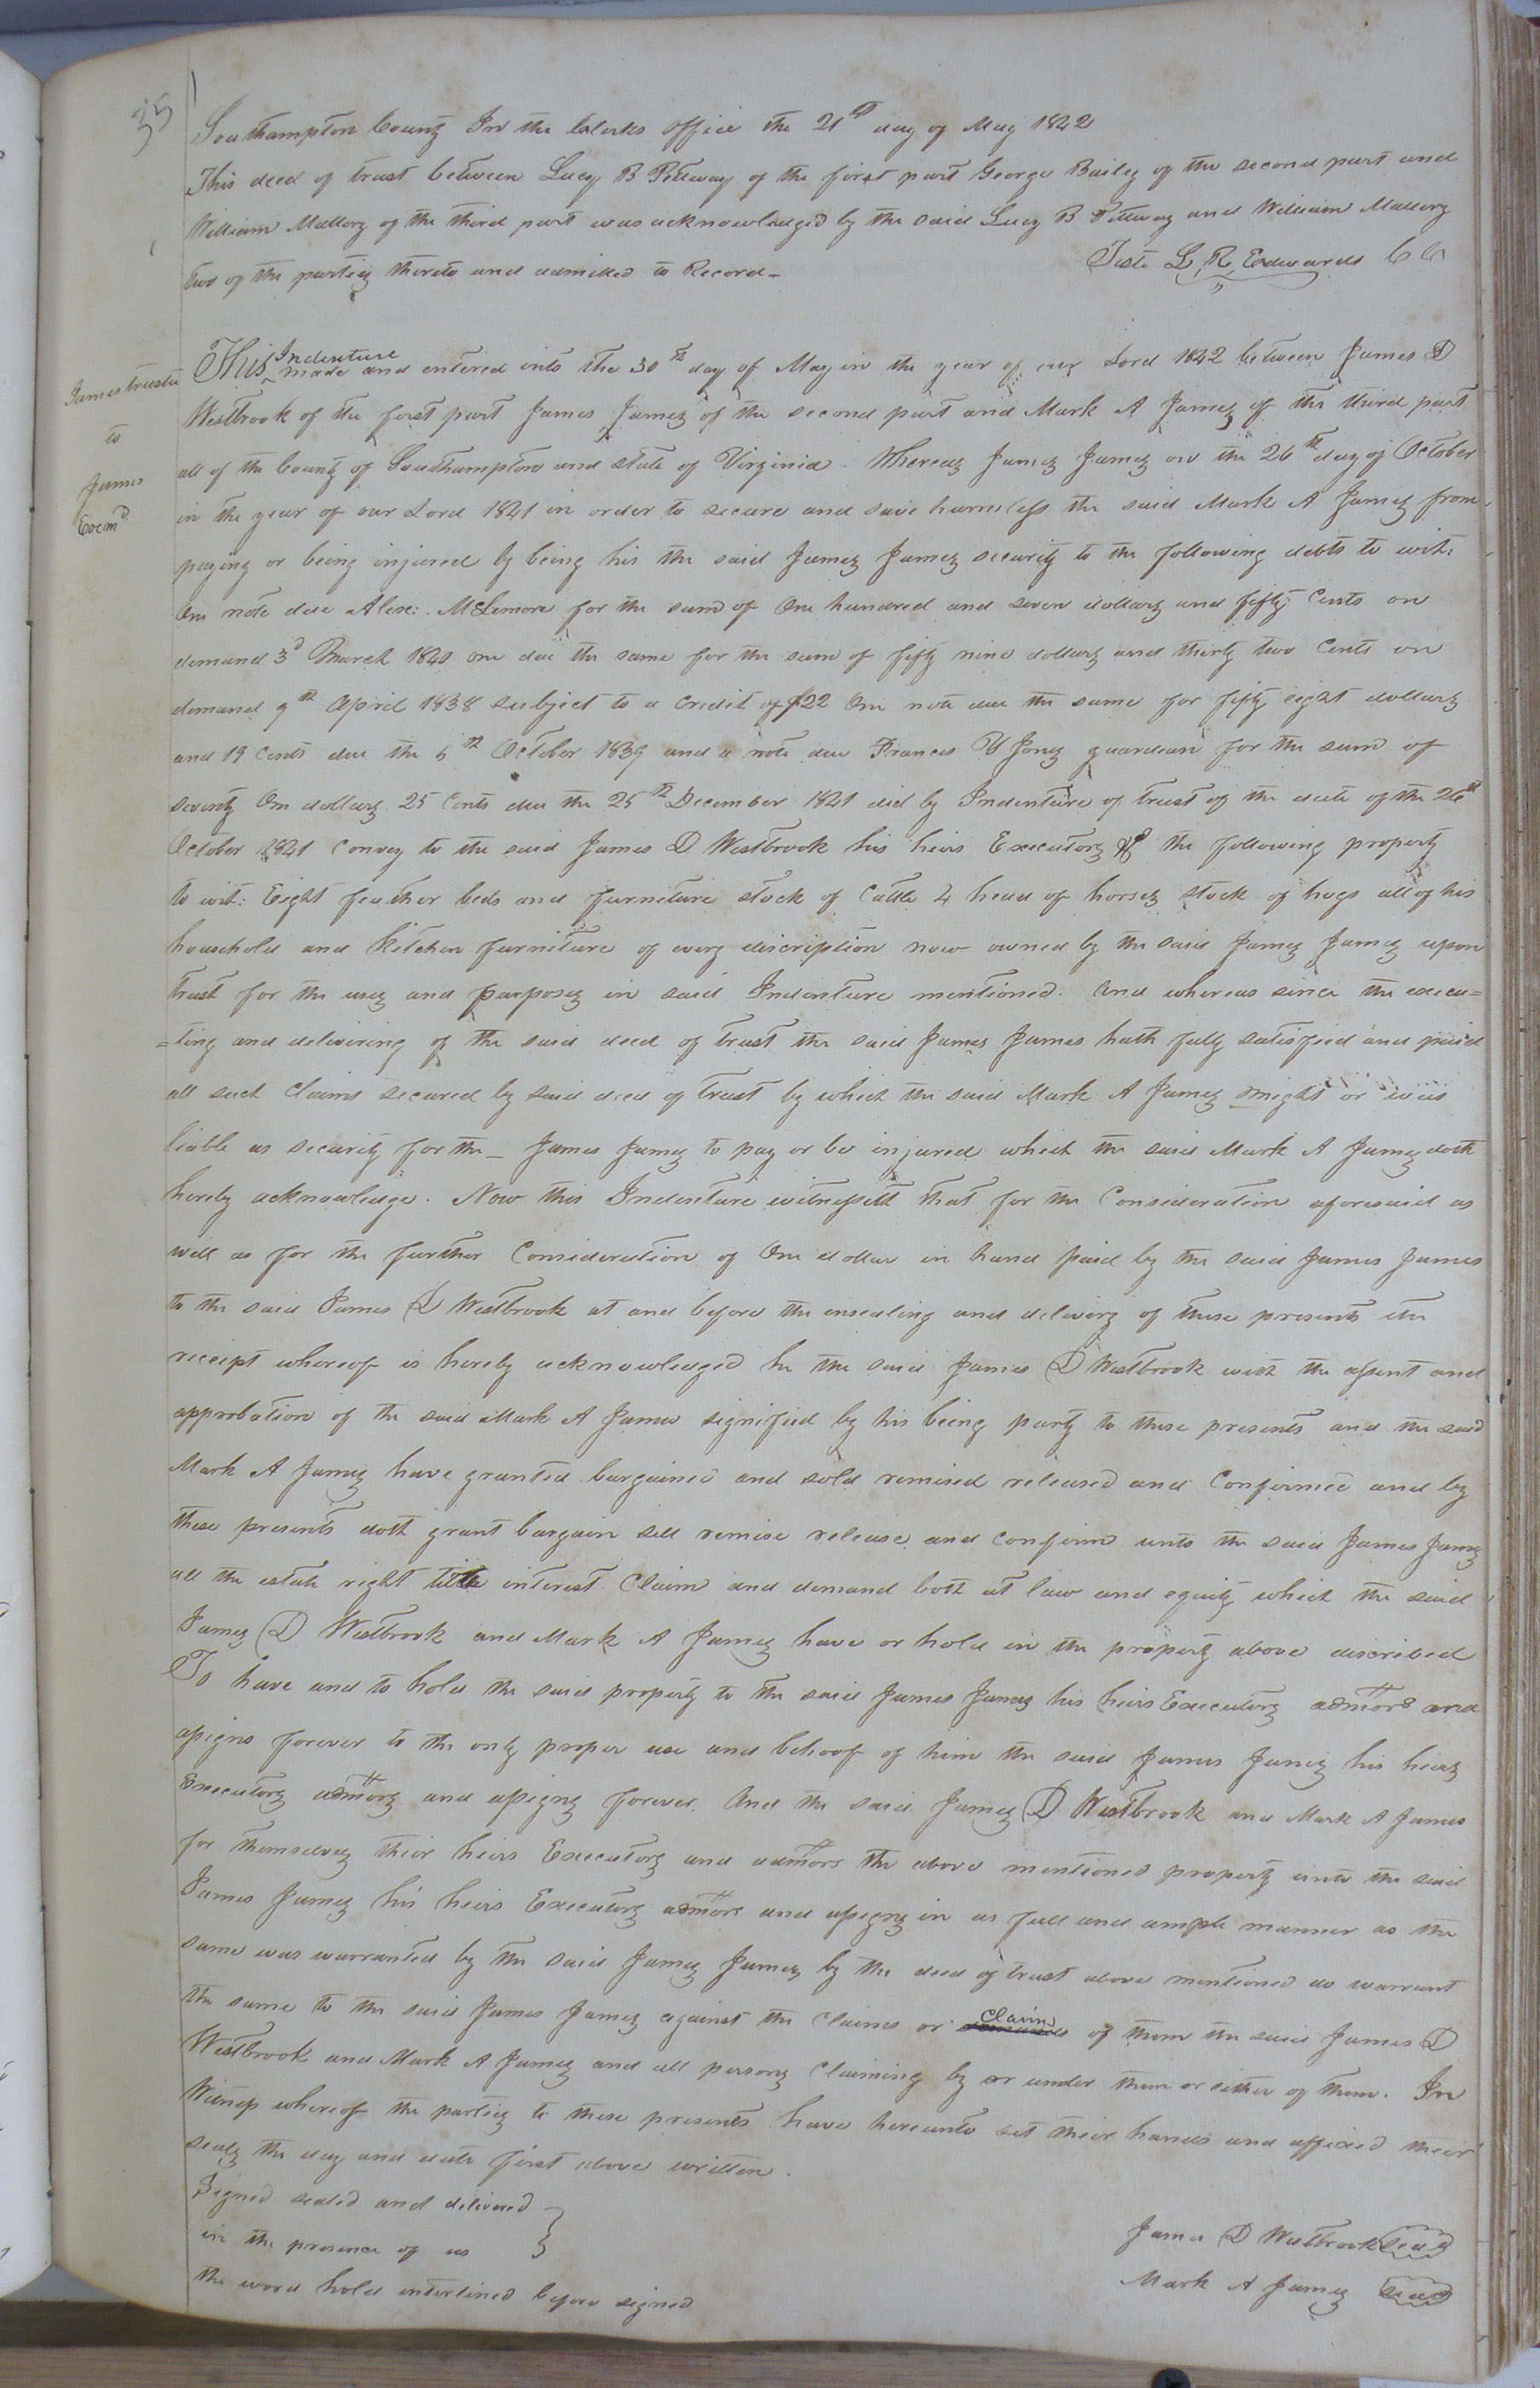 35
Southampton County In the Clerks Office the 21st day of May 1842
This deed of trust between Lucy B Pettway of the first part George Bailey of the second part and
William Mallory of the third part was acknowledged by the said Lucy B Pettway and William Mallory
two of the parties thereto and admitted to Record—
Teste L. R. Edwards CC
James trustee
to
James
Exemd
This Indenture made and entered into the 30th day of May in the year of our Lord 1842 between James D
Westbrook of the first part James James of the second part and Mark A James of the third part
all of the County of Southampton and state of Virginia. Whereas James James on the 26th day of October
in the year of our Lord 1841 in order to secure and save harmless the said Mark A James from
paying or being injured by being his the said James James security to the following debts to wit:
One note due Alex: McLemore for the sum of One hundred and seven dollars and fifty Cents on
demand 3d March 1840 one due the same for the sum of fifty nine dollars and thirty two Cents on
demand 9th April 1838 subject to a credit of $22 One note due the same for fifty eight dollars
and 19 Cents due the 5th October 1839 and a note due Francis Jones guardian for the sum of
seventy One dollars 25 Cents due the 25th December 1841 did by Indenture of trust of the date of the 26th
October 1841 Convey to the said James D Westbrook his heirs Executors &c the following property
to wit: Eight feather beds and furniture stock of Cattle 4 head of horses stock of hogs all of his
household and kitchen furniture of every discription now owned by the said James James upon
trust for the uses and purposes in said Indenture mentioned. And whereas since the execu=
=ting and delivering of the said deed of trust the said James James hath fully satisfied and paid
all such Claims secured by said deed of trust by which the said Mark A James might or was
liable as security for the — James James to pay or be injured which the said Mark A James doth
hereby acknowledge. Now this Indenture witnesseth that for the Consideration aforesaid as
well as for the further Consideration of One dollar in hand paid by the said James James
to the said James D Westbrook at and before the ensealing and delivery of these presents the
receipt whereof is hereby acknowledged he the said James D Westbrook with the assent and
approbation of the said Mark A James signified by his being party to these presents and the said
Mark A James have granted bargained and sold remised released and Confirmed and by
these presents doth grant bargain sell remise release and confirm unto the said James James
all the estate right title interest Claim and demand both at law and equity which the said
James D Westbrook and Mark A James have or hold in the property above discribed
To have and to hold the said property to the said James James his heirs Executors admors and
assigns forever to the only proper use and behoof of him the said James James his heirs
Executors admors and assigns forever. And the said James D Westbrook and Mark A James
for themselves their heirs Executors and admors the above mentioned property unto the said
James James his heirs Executors admors and assigns in as full and ample manner as the
same was warranted by the said James James by the deed of trust above mentioned do warrant
the same to the said James James against the Claims or Claim of them the said James D
Westbrook and Mark A James and all persons Claiming by or under them or either of them. In
Witness whereof the parties to these presents have hereunto set their hands and affixed their
seals the day and date first above written.
Signed sealed and delivered
in the presence of us
the word hold interlined before signed
James D Westbrook seal
Mark A James seal